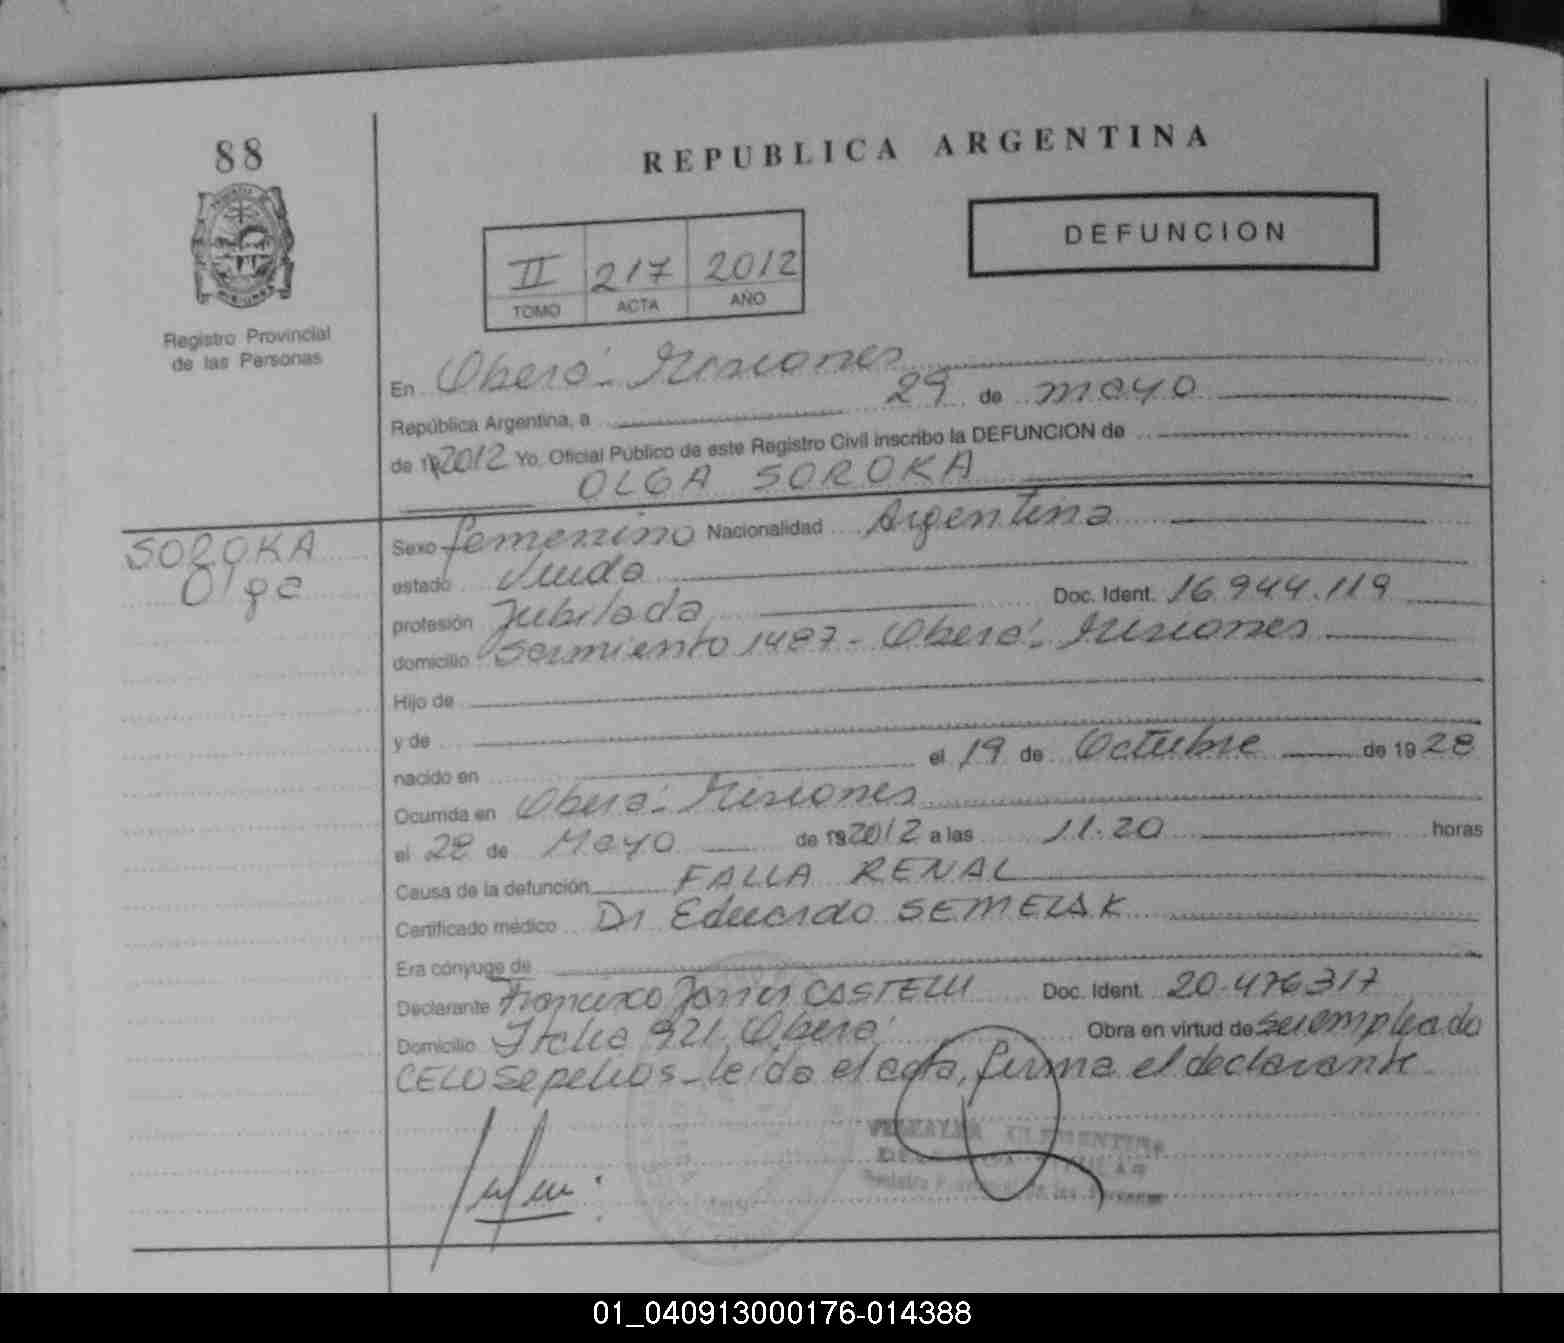 88
REPUBLICA ARGENTINA
DEFUNCION
II 217 2012
TOMO ACTA AÑO
Registro Provincial
de las Personas
En Oberá - Misiones
República Argentina, a 29 de mayo
de 19 2012 Yo, Oficial Público de este Registro Civil inscribo la DEFUNCION de
OLGA SOROKA
SOROKA
Olga
Sexo femenino Nacionalidad Argentina
estado Viuda
profesión Jubilada Doc. Ident. 16.944.119
domicilio Sarmiento 1487 - Oberá - Misiones
Hijo de
y de
nacido en el 19 de Octubre de 1928
Ocurrida en Oberá - Misiones
el 28 de Mayo de 19 2012 a las 11.20 horas
Causa de la defunción FALLA RENAL
Certificado médico Dr Eduardo SEMELAK
Era cónyuge de
Declarante Francisco Javier CASTELLI Doc. Ident. 20.476317
Domicilio Italia 921 Oberá Obra en virtud de ser empleado
CELO Sepelios - leida el acta, firma el declarante
01_040913000176-014388